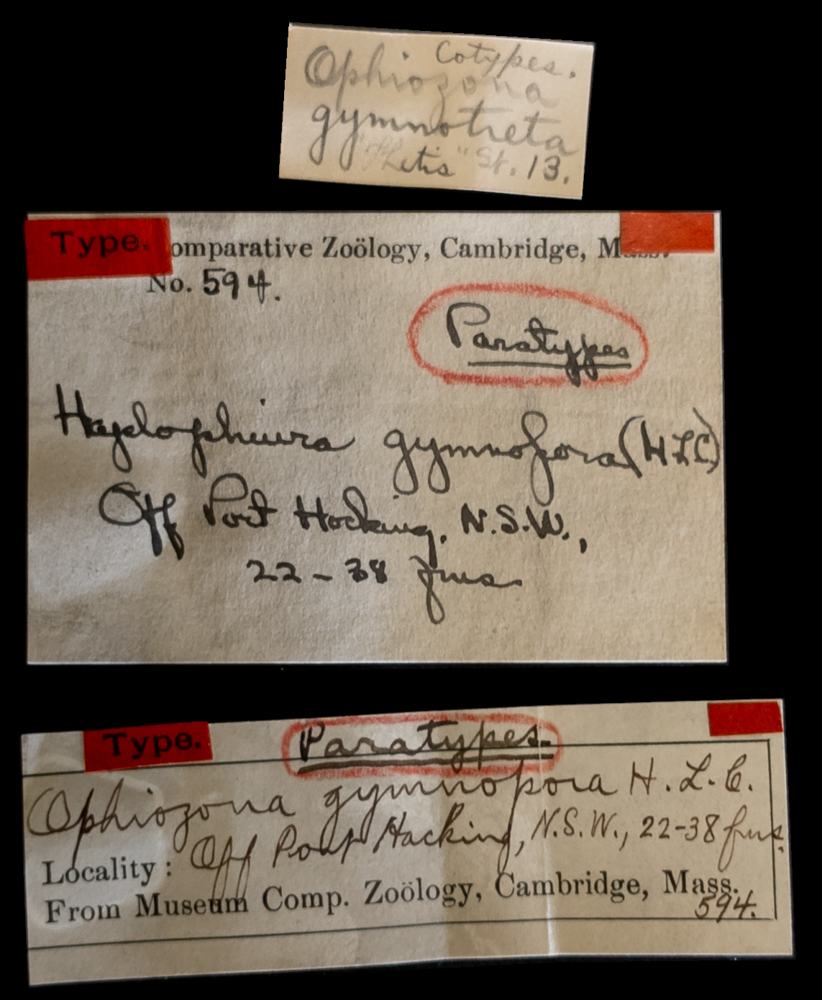 Cotypes.
Ophiozona
gymnotreta
"Thetis" St. 13.
Type.
omparative Zoölogy, Cambridge, Mass.
No. 594.
Paratypes
Haplophiura gymnopora (HLC)
Off Port Hacking, N.S.W.,
22-38 fms.
Type.
Paratypes.
Ophiozona gymnopora H. L. C.
Locality: Off Port Hacking, N.S.W., 22-38 fms.
From Museum Comp. Zoölogy, Cambridge, Mass.
594.